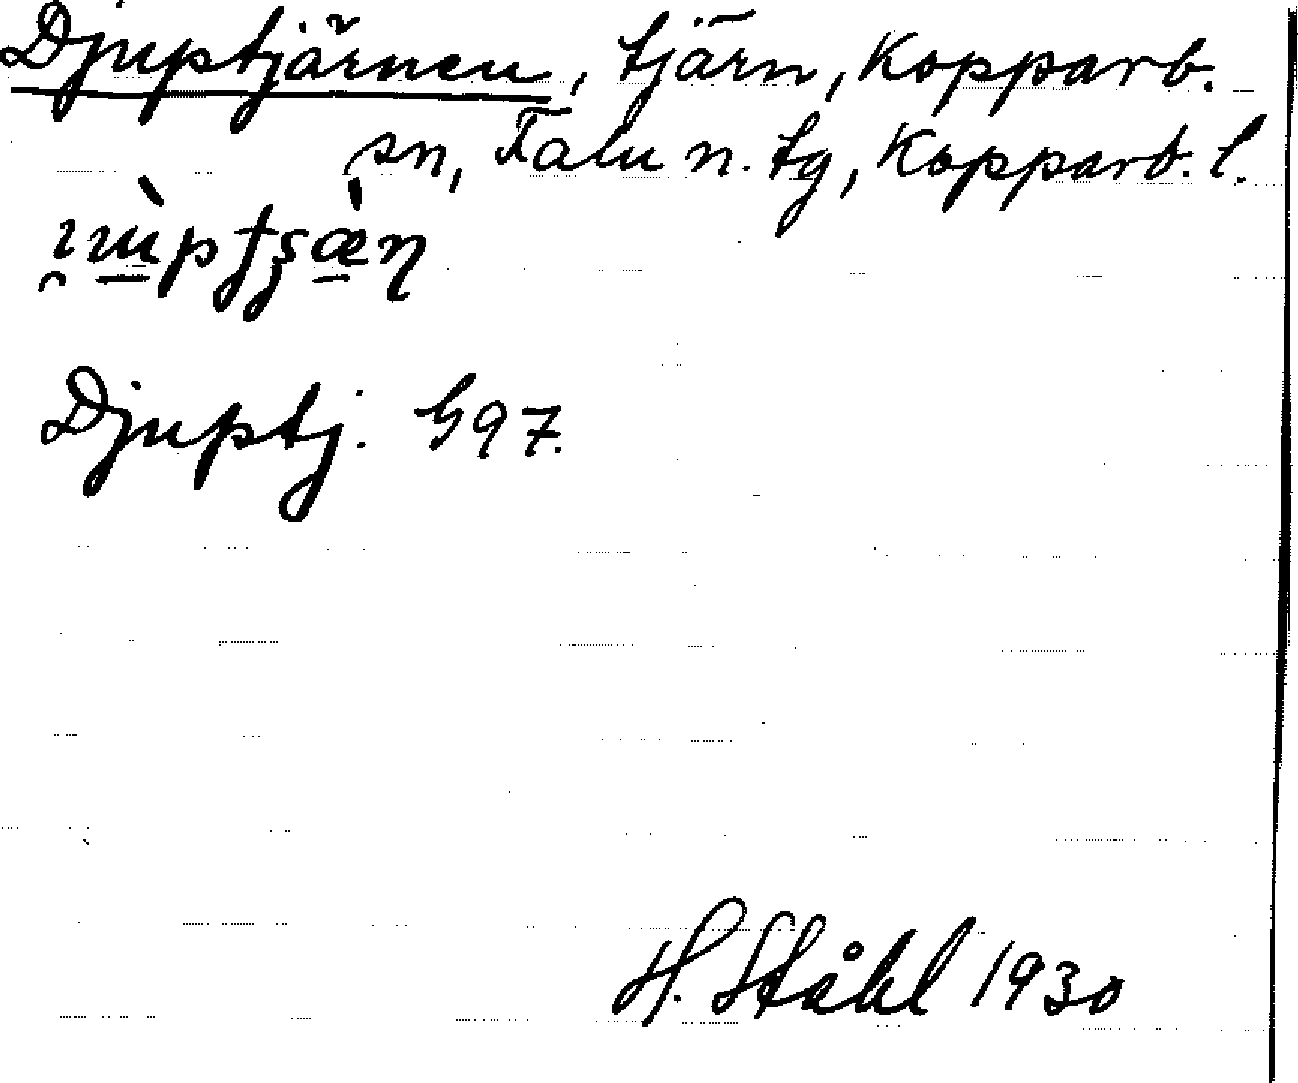 Djuptjärnen, tjärn, Kopparb.
sn, Falu n. tg, Kopparb. l.
Djuptj. G97.
H. Ståhl 1930